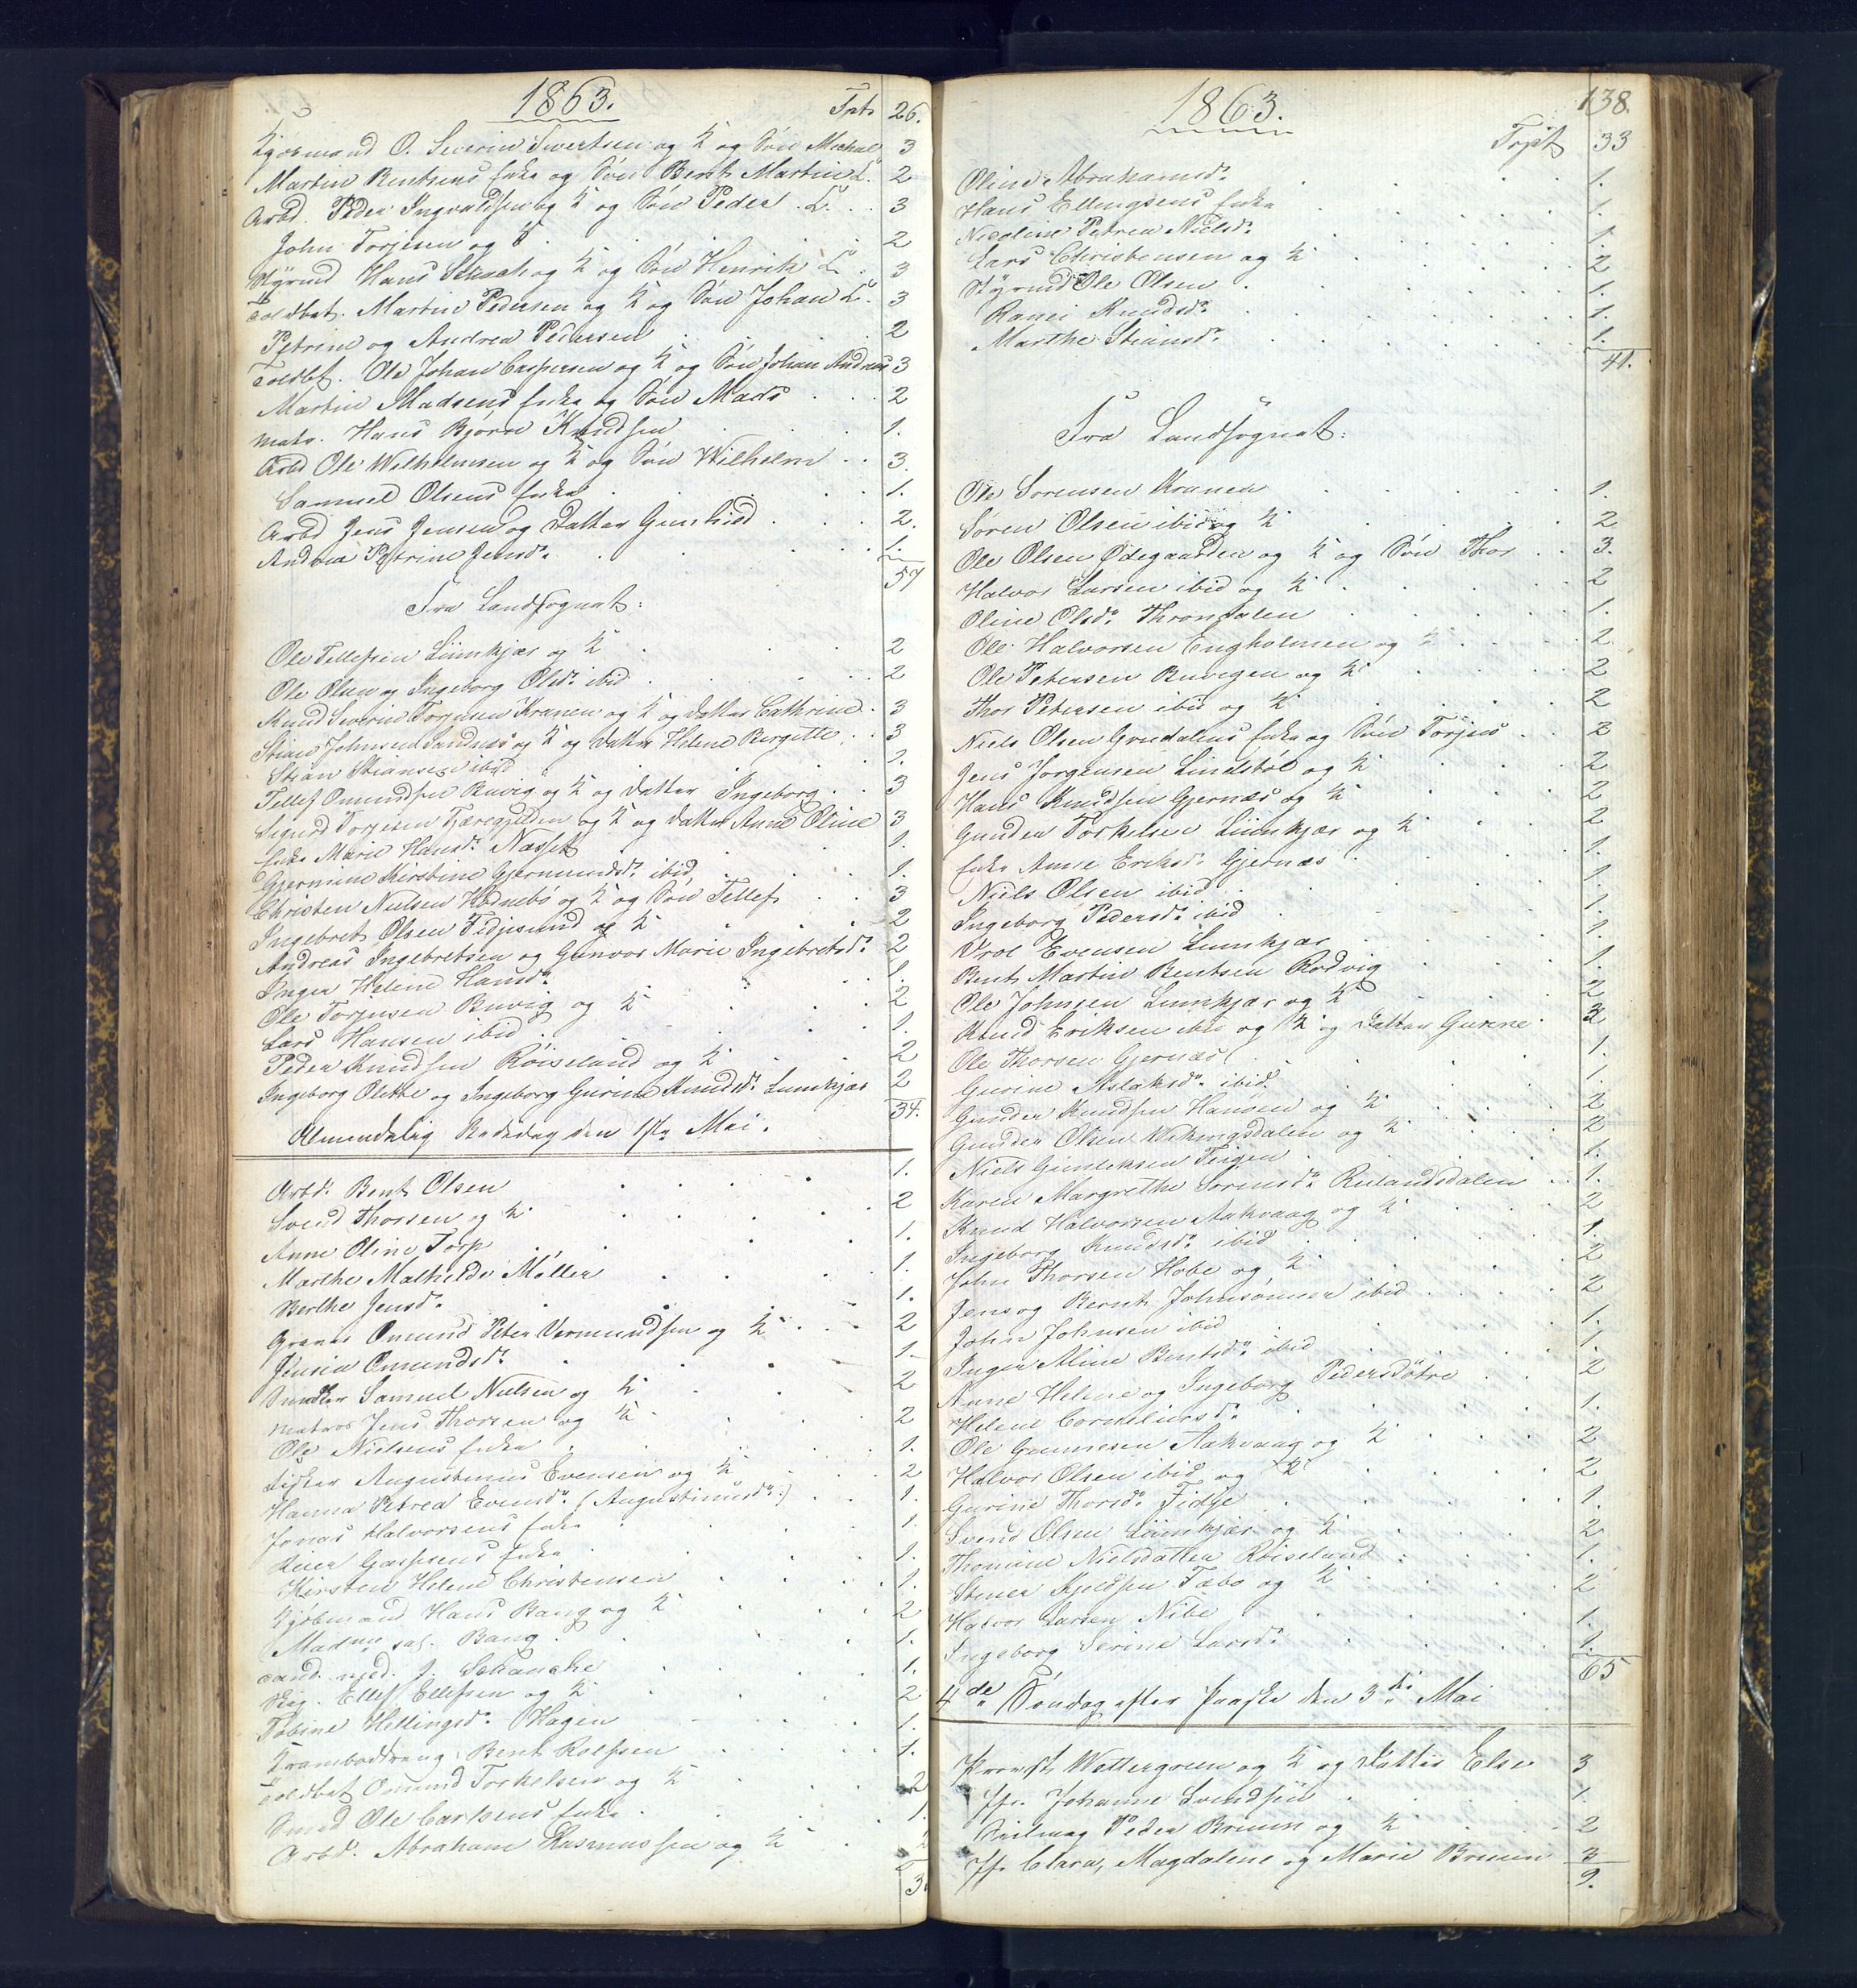 1863.
Tpt 26.
Kjøbmand O. Severin Sivertsen og K og Søn Michael 3
Martin Bentsens Enke og Søn Bent Martin L. 2
Arbd. Peder Ingvaldsen og K og Søn Peder L. . . 3
John Torjesen og K . 2
Styrmd Hans og K og Søn Henrik L . 3
Toldbet. Martin Pedersen og K og Søn Johan L. 3
Petrine og Andrea Pedersen 2
Toldbt. Ole Johan Caspersen og K og Søn Johan Andreas 3
Martin Madsens Enke og Søn Mads . . 2
Matr. Hans Bjørn Knudsen 1.
Arbd Ole Wilhelmsen og K og Søn Wilhelm . . 3.
Samuel Olsens Enke . . . 1.
Arbd Jens Jensen og Datter Gunhild . . . 2.
Andrea Petrine Jensdr. . . . 1.
57
Fra Landsognet:
Ole Tellefsen Liimkjær og K . . 2
Ole Olsen og Ingeborg Olsdr. ibid . . . 2
Knud Severin Torjusen Kranen og K og Datter Cathrine . 3
Stian Johnsen Sandnæs og K og Datter Helene Birgitte . . 3
Stian Stiansen ibid . . . 1.
Tellef Omundsen Buvig og K og Datter Ingeborg . . 3
Sigurd Torjesen Tjæregjelen og K og Datter Anne Oline 3
Enke Marie Hansdr. Næsset . . 1.
Gjermine Kirstine Gjermundsdr. ibid . . . 1.
Christen Nielsen Hødnebø og K og Søn Tellef . . 3
Ingebret Olsen Fidjesund og K . . . 2
Andreas Ingebretsen og Gunvor Marie Ingebretsdr. 2
Inger Helene Hansdr. . . 1.
Ole Torjusen Buvig og K . . 2
Lars Hansen ibid . . . 1.
Peder Knudsen Røiseland og K . . 2
Ingeborg Olette og Ingeborg Gurine Knudsdr. Lumkjær 2
34.
Almindelig Bededag den 1ste Mai.
Arbdr. Bent Olsen . . . . 1.
Svend Thorsen og K . . . . . 2
Anne Oline Torp . . . . 1.
Marthe Mathilde Møller . . . . 1.
Berthe Jensdr. . . . 1.
Omund Peter Vermundsen og K . . . 2
Jensia Omundsdr. . . . . 1.
Snedker Samuel Nielsen og K . . 2
Matros Jens Thorsen og K . . . 2
Ole Nielsens Enke . . . . 1.
Fisker Augustinus Evensen og K . . . 2
Hanna Petrea Evensdr. (Augustinusdr.) . . 1.
Jonas Halvorsens Enke . . . 1.
Reier Gasesens Enke . . . . 1.
Kirsten Helene Christensen . . . . 1.
Kjøbmand Hans Bang og K . . . 2
Madme sal. Bang . . . . 1.
cand. med. J. Schanche . . . . 1.
Skip. Ellef Ellefsen og K . . . 2
Tobine Hellingsdr. Hagen . . . . 1.
Kramboddreng Bent Rolfsen . . . 1.
Toldbet Omund Torkelsen og K . . 2
Smed Ole Carlsens Enke . . . . 1.
Arbd. Abraham Rasmussen og K . . 2
3
1863.
138.
Tpt 33
Oline Abrahamsdr. . . . . 1.
Hans Ellingsens Enke . . . . 1.
Nicoline Petrea Nielsdr. . . . . 1.
Lars Christensen og K . . . . 2
Styrmd Ole Olsen . . . . . 1.
Ranei Knudsdr. . . . . . 1.
Marthe Stiansdr. . . . . . 1.
41.
Fra Landsognet:
Ole Sørensen Kranen . . . . 1.
Søren Olsen ibid og K . . . . 2
Ole Olsen Ødegaarden og K og Søn Thor . . 3.
Halvor Larsen ibid og K . . . . 2
Oline Olsdr. Throndalen . . . . 1.
Ole Halvorsen Engholmen og K . . . . 2
Ole Petersen Buvigen og K . . . 2
Thor Petersen ibid og K . . . 2
Niels Olsen Grødalens Enke og Søn Torjus . . 2
Jens Jørgensen Lindstøl og K . . 2
Hans Knudsen Gjernæs og K . . . 2
Gunder Torkelsen Liimkjær og K . . 2
Enke Anne Eriksdr. Gjernæs . . . 1.
Niels Olsen ibid . . . . 1
Ingeborg Pedersdr. ibid . . . . 1.
Evensen Lumkjær . . . 1.
Bent Martin Bentsen Rødvig . . . 1.
Ole Johnsen Lumkjær og K . . . 2
Knud Eriksen ibid og K og Datter Gurine . 3
Ole Thorsen Gjernæs . . . . 1.
Gurine Aslaksdr. ibid. . . . 1.
Gunder Knudsen Hanøen og K . . . 2
Gunder Olsen Vikingsdalen og K . . . 2
Niels Gunleksen Teigen . . . . 1.
Karen Margrethe Sørensdr. Reilandsdalen . . 1.
Knud Halvorsen Aakvaag og K . . . 2
Ingeborg Knudsdr. ibid . . . . 1.
John Thorsen Hobe og K . . . . 2
Jens og Bernt Johnsønner ibid . . . 2
John Johnsen ibid . . . . 1.
Inger Aline Bentsdr. ibid . . . . 1.
Anne Helene og Ingeborg Pedersdøtre . . 2
Helene Corneliusdr. . . . . 1.
Ole Gunnesen Aakvaag og K . . . 2
Halvor Olsen ibid og K . . . 2
Gurine Thorsdr. Fidje . . . . 1.
Svend Olsen Liimkjær og K . . . 2
Thomine Nielsdatter Røiseland . . . 1.
Stener Kjeldsen Fæbo og K . . . . 2
Halvor Larsen Nibe . . . . 1.
Ingeborg Serine Larsdr. . . . . 1.
65
4de Søndag efter Paaske den 3die Mai
Provst Wettergreen og K og Datter Else 3
Jfr. Johanne Svendsen . . . . 1.
Seilmag Peder Bruun og K . . . 2
Jfr Clara, Magdalene og Marie Bruun 3
9.